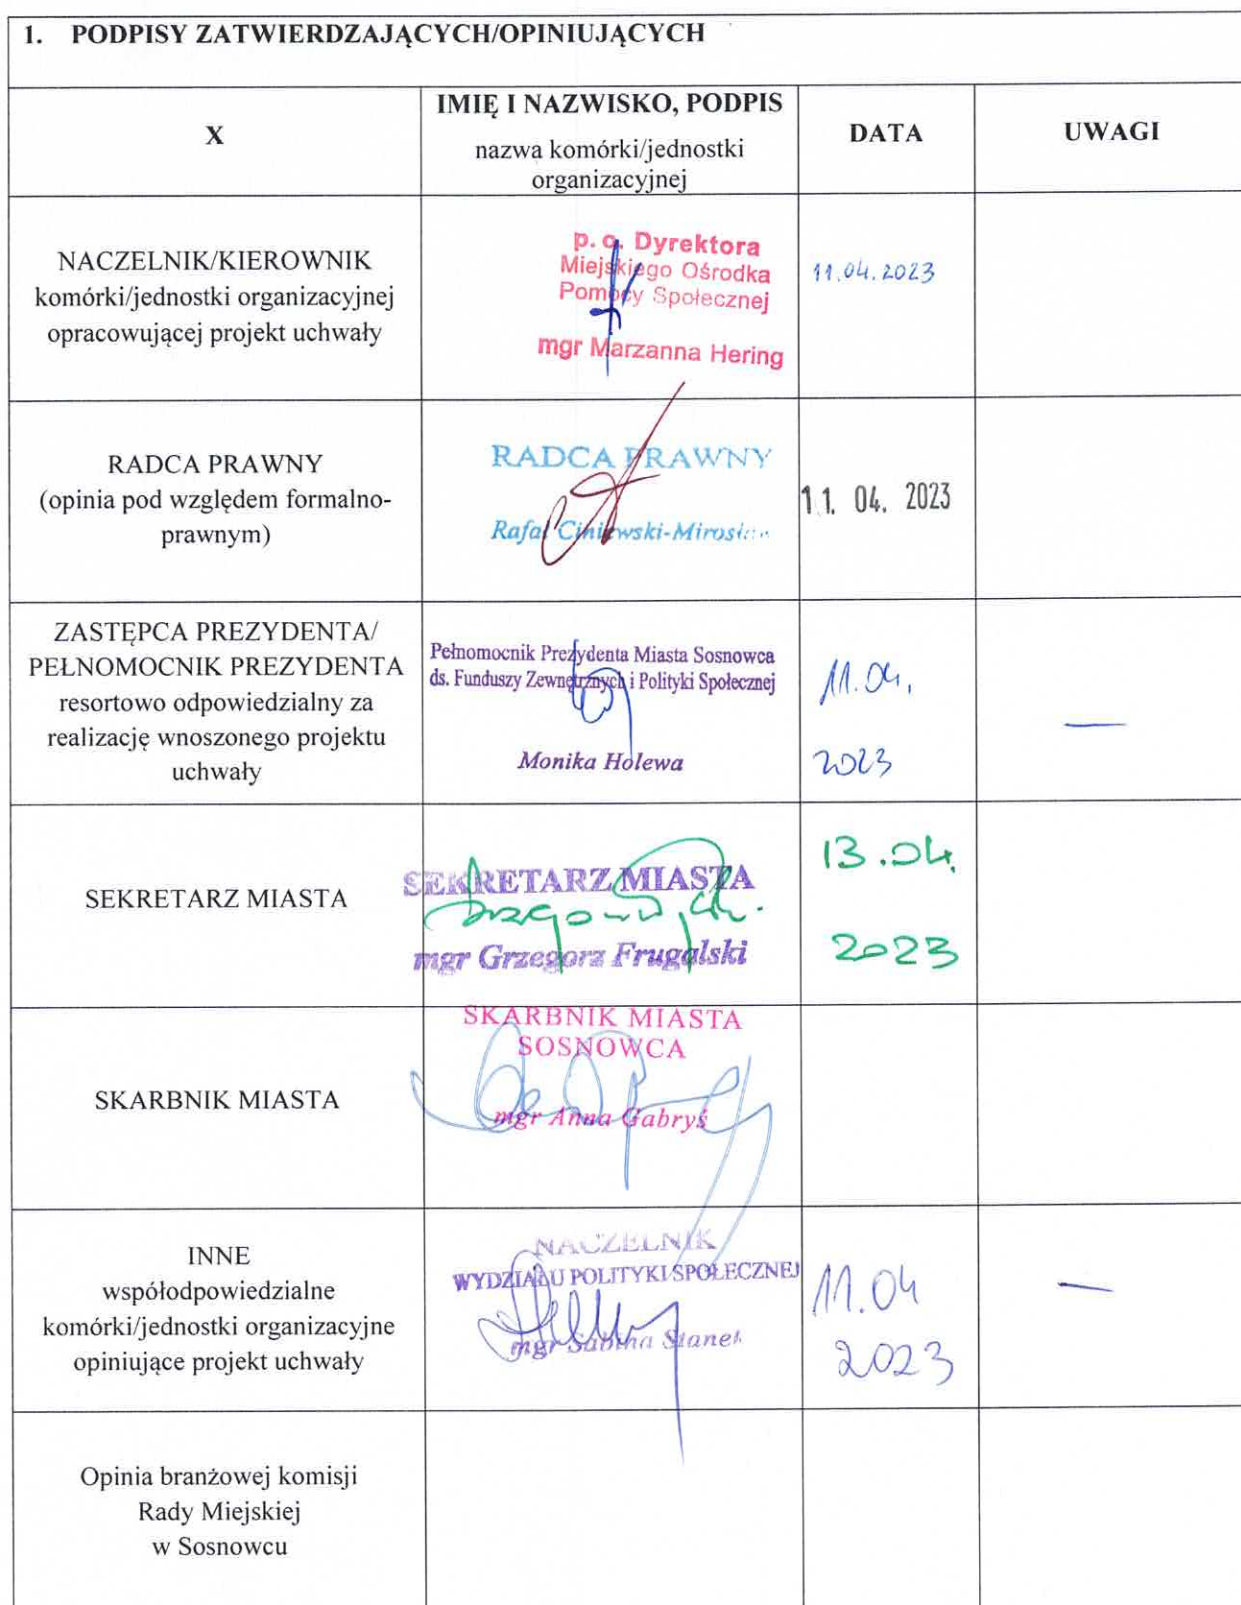 1. PODPISY ZATWIERDZAJĄCYCH/OPINIUJĄCYCH
X
IMIĘ I NAZWISKO, PODPIS
nazwa komórki/jednostki
organizacyjnej
DATA
UWAGI
NACZELNIK/KIEROWNIK
komórki/jednostki organizacyjnej
opracowującej projekt uchwały
p. o. Dyrektora
Miejskiego Ośrodka
Pomocy Społecznej
mgr Marzanna Hering
11.04.2023
RADCA PRAWNY
(opinia pod względem formalno-
prawnym)
RADCA PRAWNY
Rafał
11. 04. 2023
ZASTĘPCA PREZYDENTA/
PEŁNOMOCNIK PREZYDENTA
resortowo odpowiedzialny za
realizację wnoszonego projektu
uchwały
Pełnomocnik Prezydenta Miasta Sosnowca
ds. Funduszy Zewnętrznych i Polityki Społecznej
Monika Holewa
11.04.
2023
—
SEKRETARZ MIASTA
SEKRETARZ MIASTA
mgr Grzegorz Frugalski
13.04.
2023
SKARBNIK MIASTA
SKARBNIK MIASTA
SOSNOWCA
mgr Anna Gabryś
INNE
współodpowiedzialne
komórki/jednostki organizacyjne
opiniujące projekt uchwały
NACZELNIK
WYDZIAŁU POLITYKI SPOŁECZNEJ
mgr Sabina Stanek
11.04
2023
—
Opinia branżowej komisji
Rady Miejskiej
w Sosnowcu